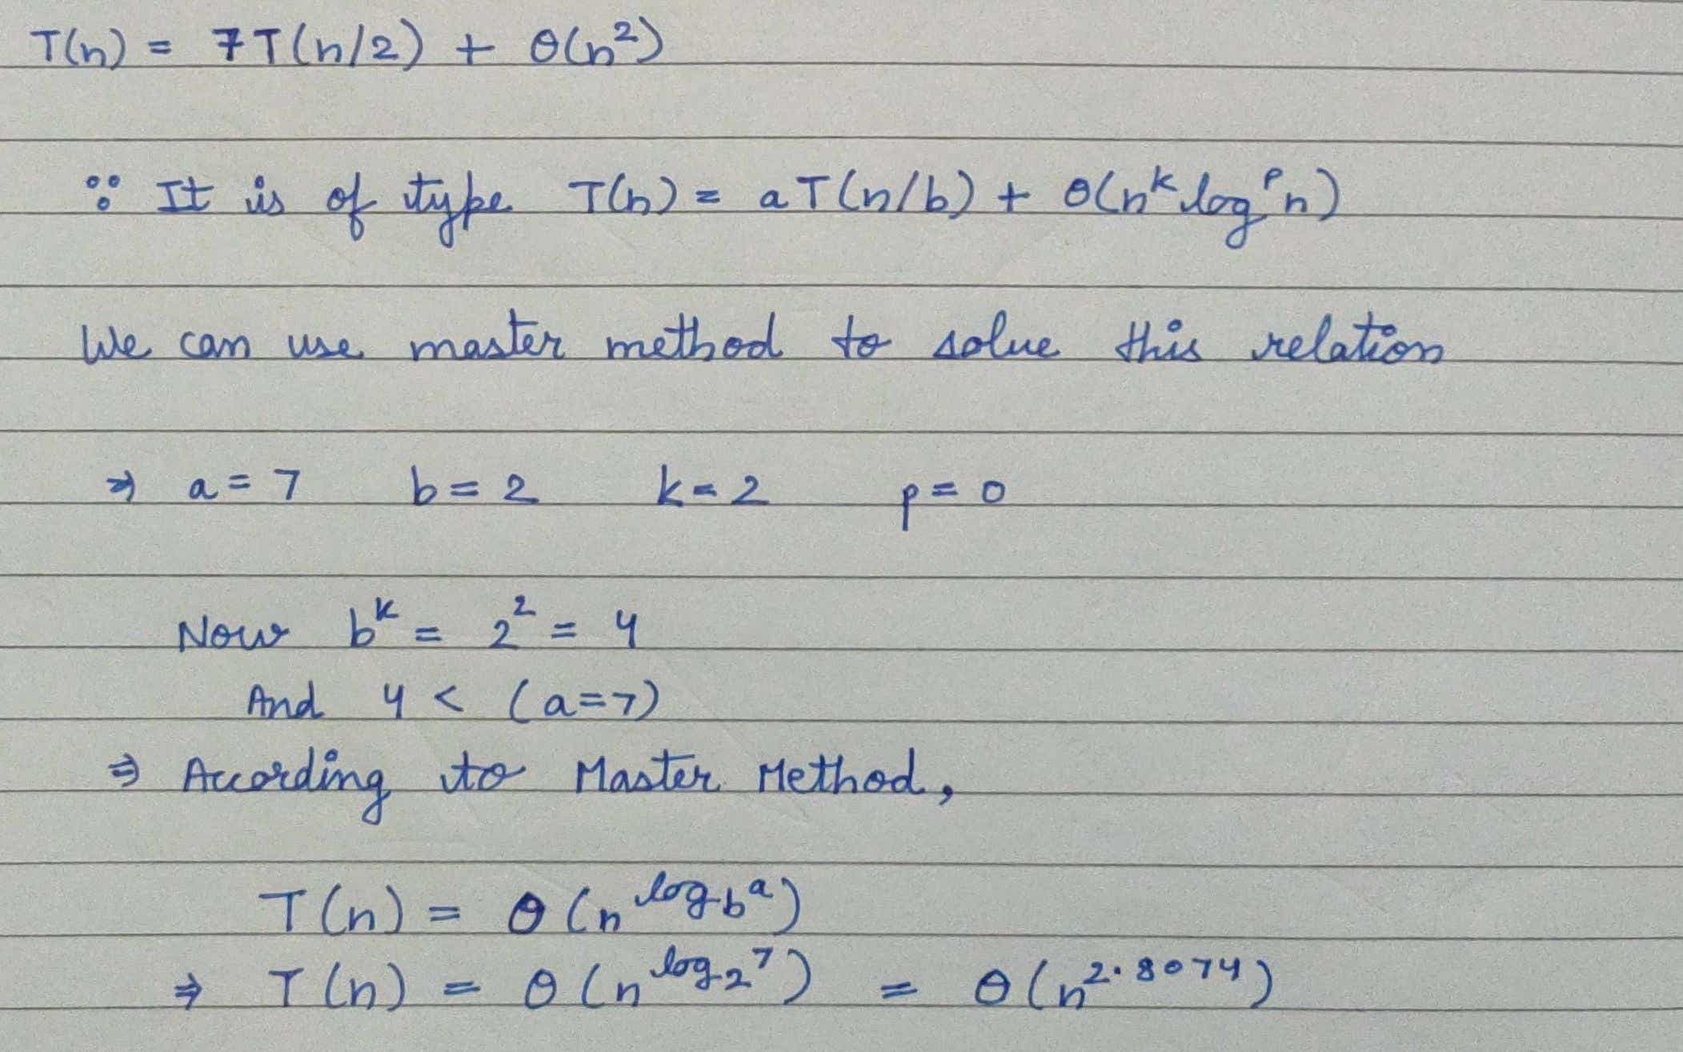 T(n) = 7T(n/2) + θ(n²)
∵ It is of type T(n) = aT(n/b) + θ(nᵏ logᵖn)
We can use master method to solve this relation
⇒ a = 7 b = 2 k = 2 p = 0
Now bᵏ = 2² = 4
And 4 < (a=7)
⇒ According to Master Method,
T(n) = θ(n^log_b a)
⇒ T(n) = θ(n^log_2 7) = θ(n^2.8074)